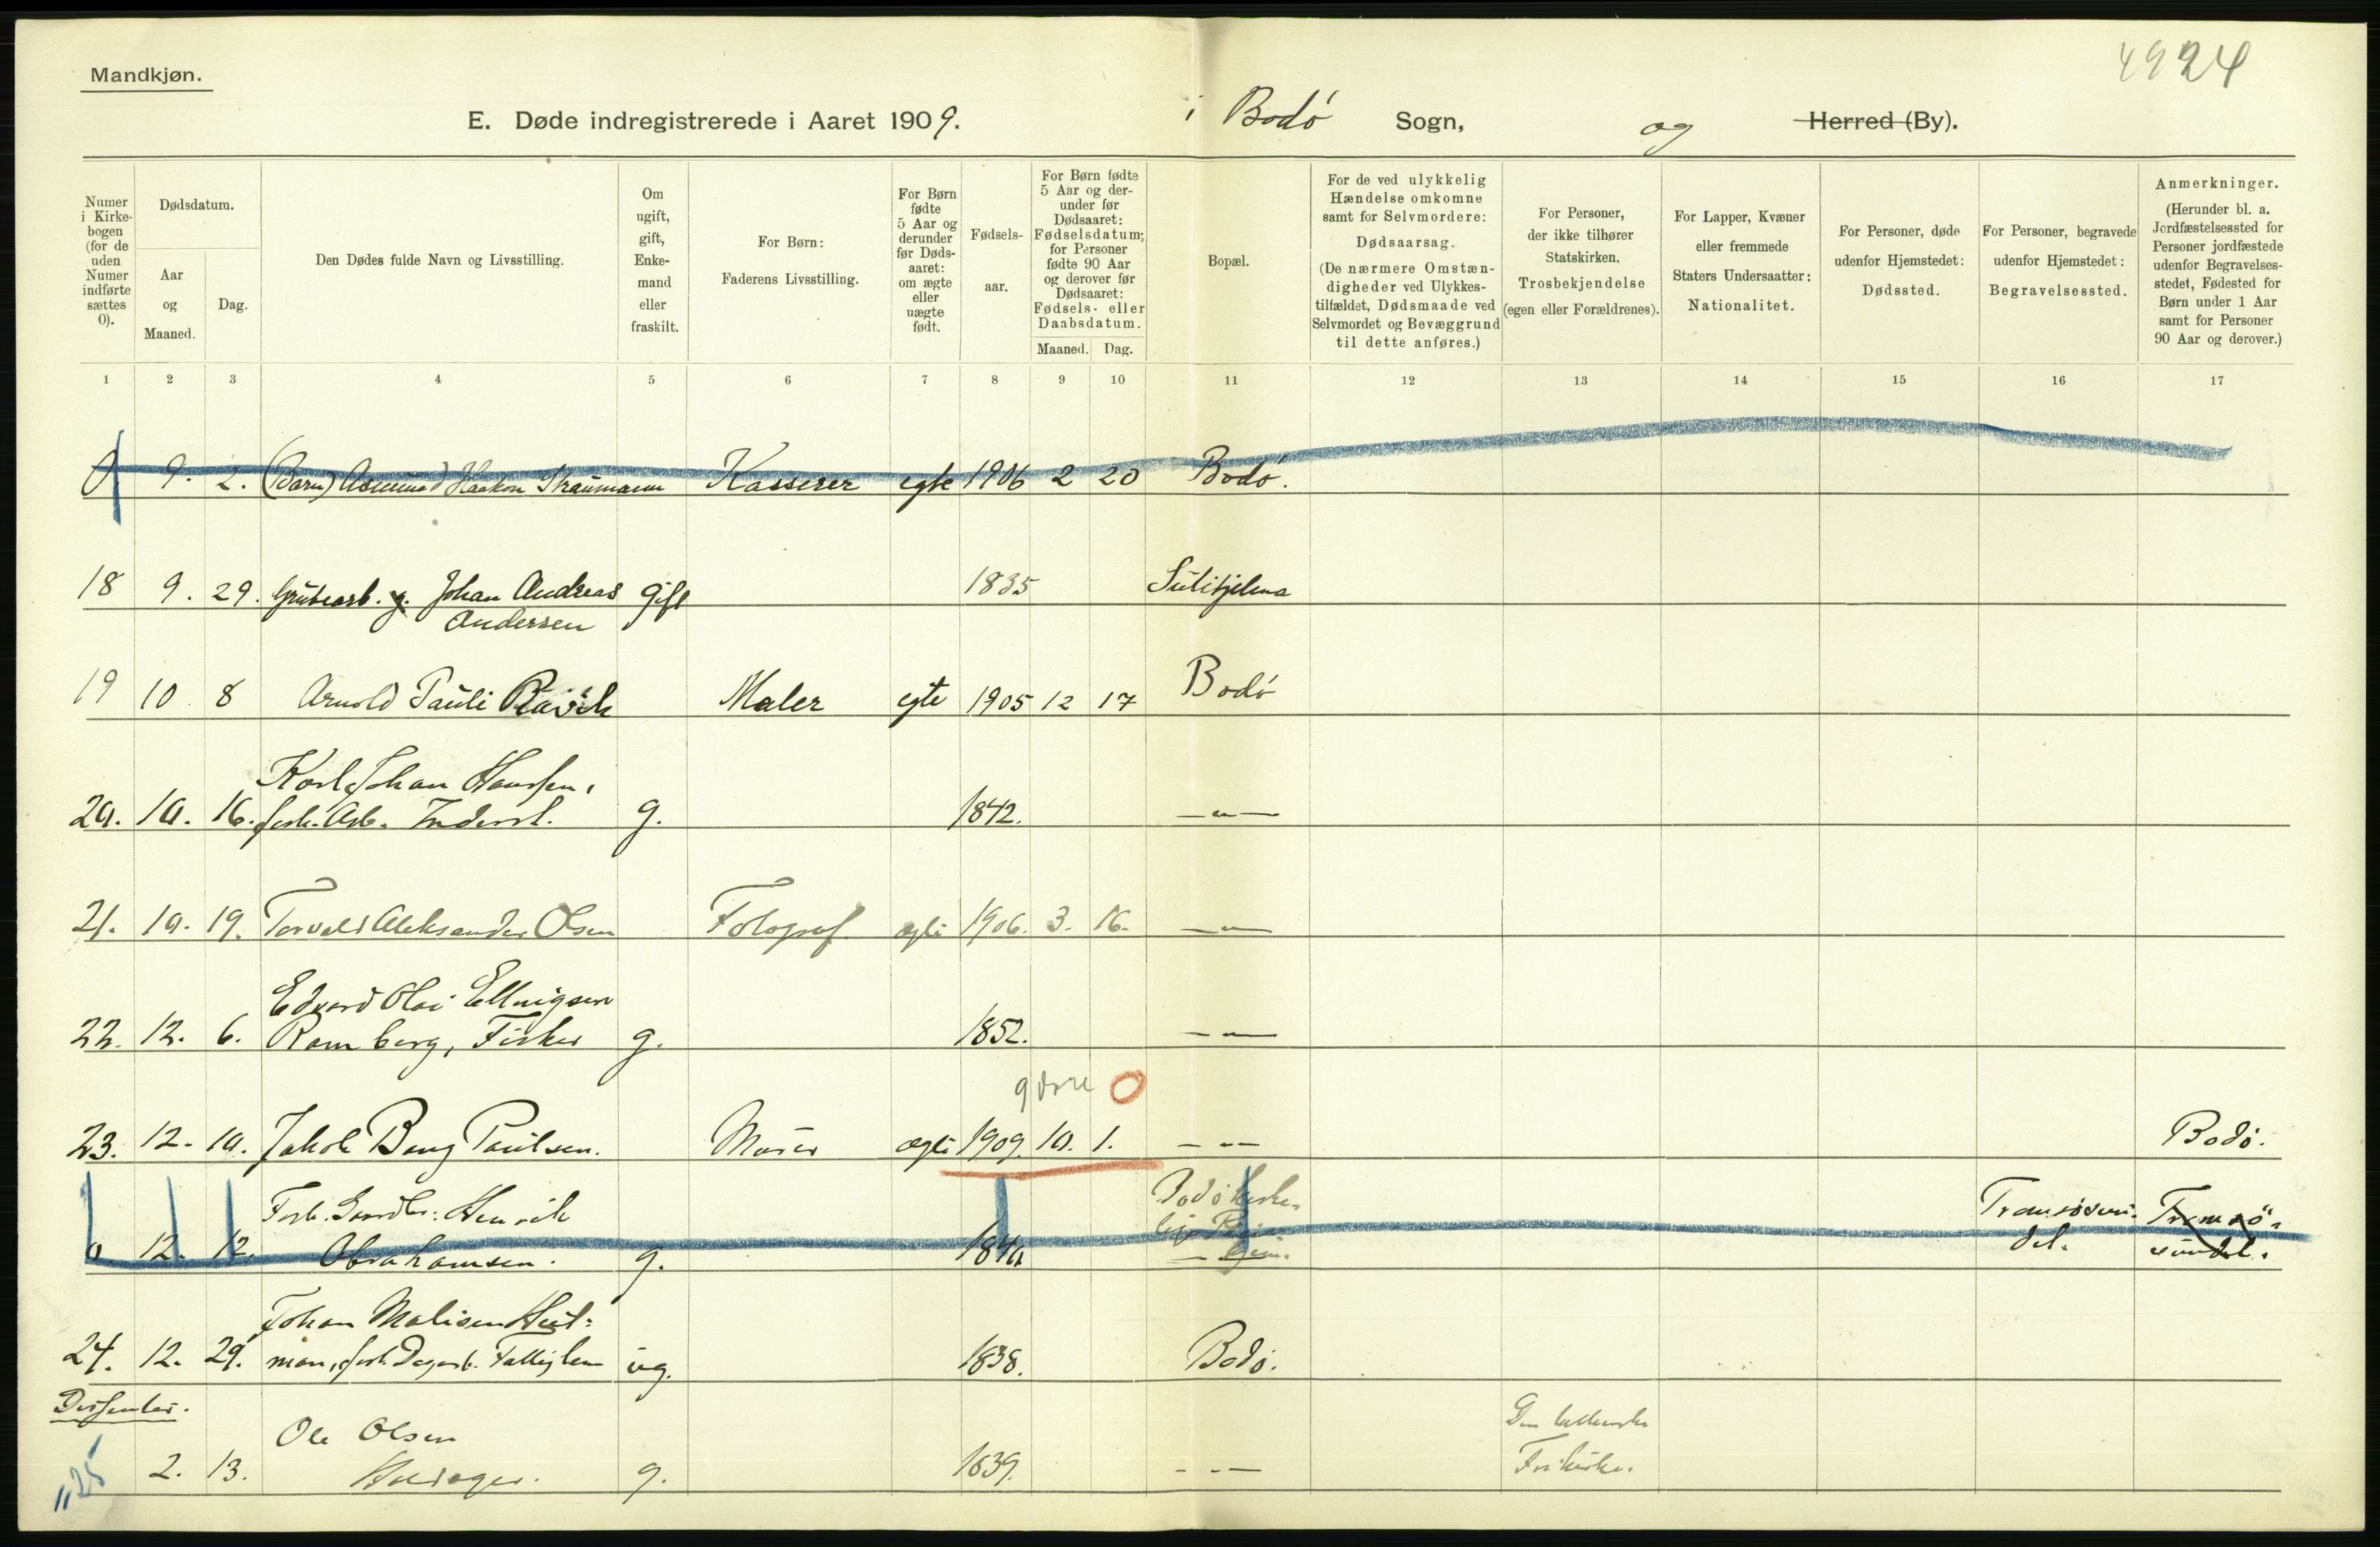 Mandkjøn.
4924
E. Døde indregistrerede i Aaret 1909. i Bodø Sogn, og Herred (By).
Numer i Kirkebogen (for de uden Numer indførte sættes 0).
Dødsdatum.
Aar og Maaned.
Dag.
Den Dødes fulde Navn og Livsstilling.
Om ugift, gift, Enkemand eller fraskilt.
For Børn: Faderens Livsstilling.
For Børn fødte 5 Aar og derunder før Dødsaaret: om ægte eller uægte født.
Fødselsaar.
For Børn fødte 5 Aar og derunder før Dødsaaret: Fødselsdatum; for Personer fødte 90 Aar og derover før Dødsaaret: Fødsels- eller Daabsdatum.
Maaned. Dag.
Bopæl.
For de ved ulykkelig Hændelse omkomne samt for Selvmordere: Dødsaarsag. (De nærmere Omstændigheder ved Ulykkestilfældet, Dødsmaade ved Selvmordet og Bevæggrund til dette anføres.)
For Personer, der ikke tilhører Statskirken, Trosbekjendelse (egen eller Forældrenes).
For Lapper, Kvæner eller fremmede Staters Undersaatter: Nationalitet.
For Personer, døde udenfor Hjemstedet: Dødssted.
For Personer, begravede udenfor Hjemstedet: Begravelsessted.
Anmerkninger. (Herunder bl. a. Jordfæstelsessted for Personer jordfæstede udenfor Begravelsesstedet, Fødested for Børn under 1 Aar samt for Personer 90 Aar og derover.)
1 2 3 4 5 6 7 8 9 10 11 12 13 14 15 16 17
0 9. 2. (Barn) Asmund Haakon Straumann Kasserer egte 1906 2 20 Bodø.
18 9. 29. Grubearb. Johan Andreas gift 1835 Sulitjelma
Andersen
19 10 8 Arnold Pauli Maler egte 1905 12 17 Bodø
Karl Johan Hansen,
20. 10. 16. forh. Arb. Underst. g. 1842. — „ —
21. 10. 19. Torvald Aleksander Olsen Fotograf ægte 1906. 3. 16. — „ —
Edvard Olai Ellingsen
22. 12. 6. Ramberg, Fisker g. 1852. — „ —
0
23. 12. 10. Jakob Bang Paulsen. Murer ægte 1909. 10. 1. — „ — Bodø.
Forh. Gaardbr. Henrik Tromsøsun- Tromsø-
0 12. 12. Abrahamsen. g. 1840 del. sundet.
Johan Malisen Heit-
24. 12. 29. man, forh. Dagarb. Fattiglem ug. 1838. Bodø.
Dissenter.
Ole Olsen Den lutherske
25 2. 13. g. 1839. — „ — Frikirke.